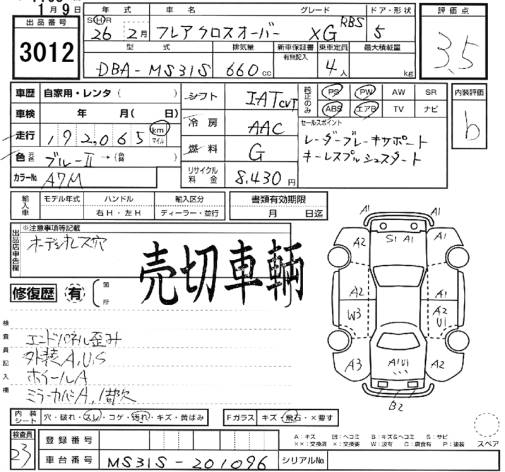 11月9日
出品番号
3012
年式 車名 グレード ドア・形状
SHR 26 2月 フレアクロスオーバー XG RBS 5
型式 排気量 新車保証書 有無記入 乗車定員 最大積載量
DBA-MS31S 660cc 4人 kg
評価点
3,5
車歴 自家用・レンタ( )
車検 年 月( 日)
走行 192,065 km マイル
色 元色 ブルーⅡ →(替 )
カラーNo. A7M
シフト IAT CVT
冷房 AAC
燃料 G
リサイクル料金 8,430円
純正のみ PS PW AW SR
ABS エアB TV ナビ
セールスポイント
レーダーブレーキサポート
キーレスプッシュスタート
内装評価
b
輸入車 モデル年式 ハンドル 輸入区分 書類有効期限
右H・左H ディーラー・並行 月 日迄
出品店申告欄
※注意事項等記載
ボデーオレス穴
売切車輌
修復歴 有 箇所
検査員記入欄
エンドパネル歪み
外装A,U,S
ホイールA
ミラーカバーA,1間欠
A1 S1 A1
A2 A1
A2 A2
W3 U1
A3 A1U1 A2
B2
内装シート 穴・破れ・スレ・コゲ・汚れ・キズ・黄ばみ Fガラス キズ・飛石・×要す
A:キズ U:ヘコミ B:キズ&ヘコミ S:サビ
××:交換済 ×:要交換 W:波有 C:腐食有 P:塗装
スペア
検査員 23
登録番号
車台番号 MS31S-201096 シリアルNo.